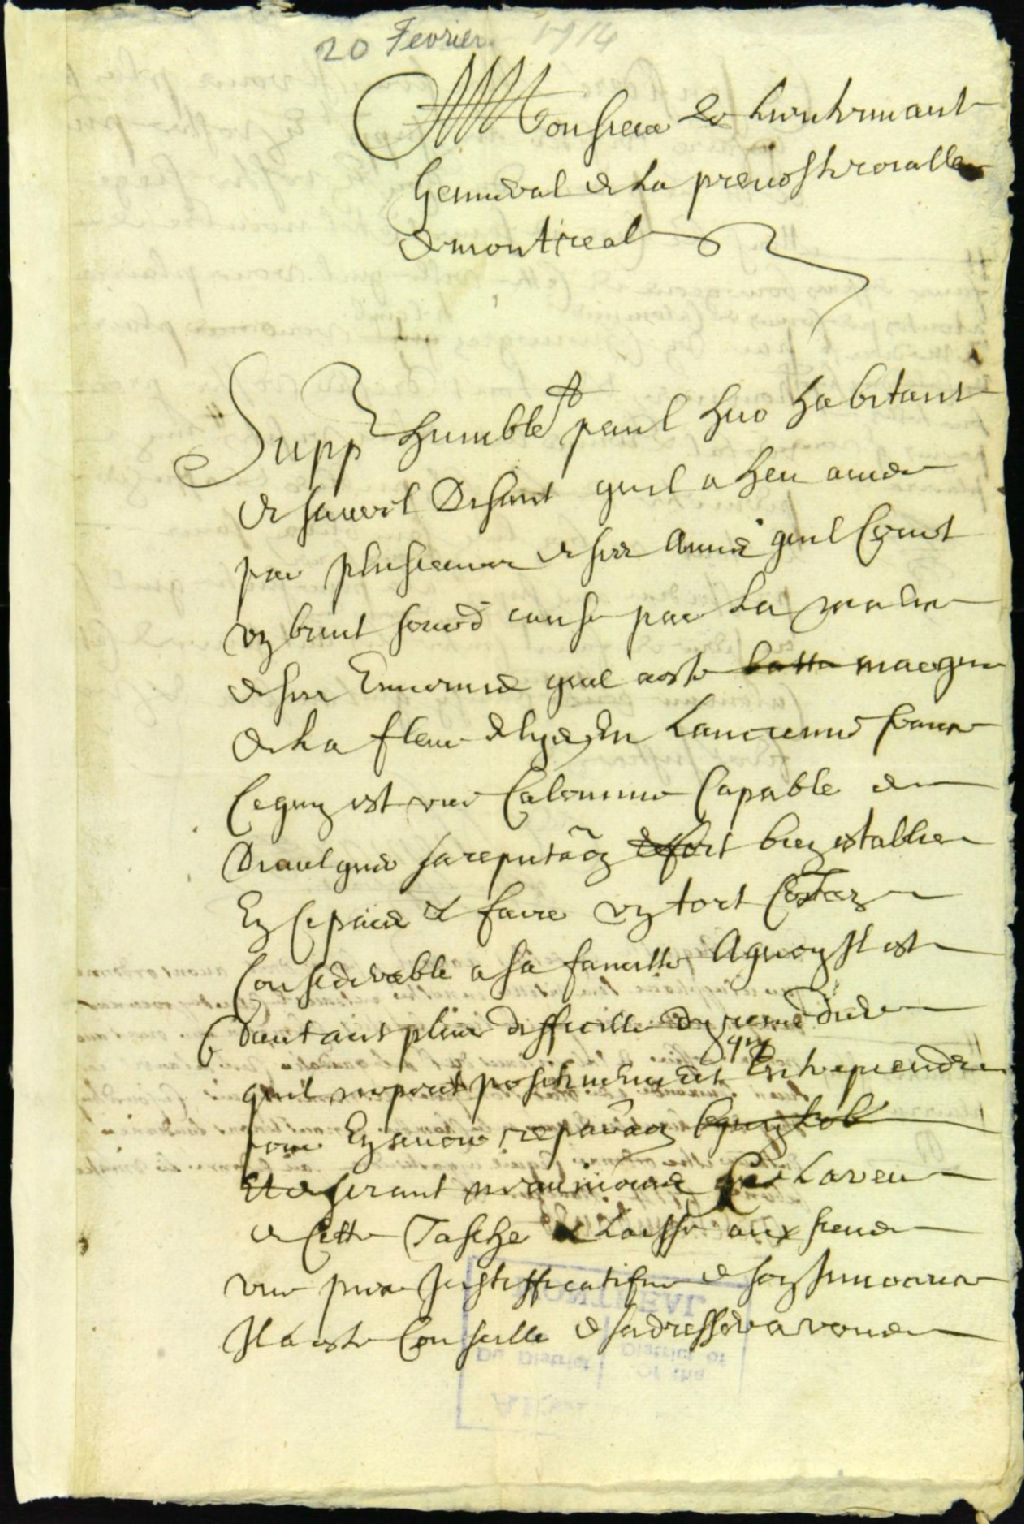 20 Fevrier 1714
Monsieur Le Lieutennant
Genneral de La prevosté roialle
de montreal
Supp humblemt paul huo habitant
de saurel Disant quil a heu avis
par plusieurs de ses Amis quil Court
un bruit sourd causé par La malice
de ses Ennemis quil a esté marqué
de La fleur de lys En Lancienne france
Ce quy est une Calomnie Capable de
sa reputaon fort bien establie
En Ce païs & faire un tort
Considerable a sa famille Aquoy Il est
Dautant plus difficille de remedier
quil ne peut positivement a quy Entreprendre
pour En avoir reparaon
Et desirant neanmoins se Laver
de Cette Tasche & Laisser aux siens
une piece Justifficative de son Innocence
Il a esté Conseillé de sadresser a vous